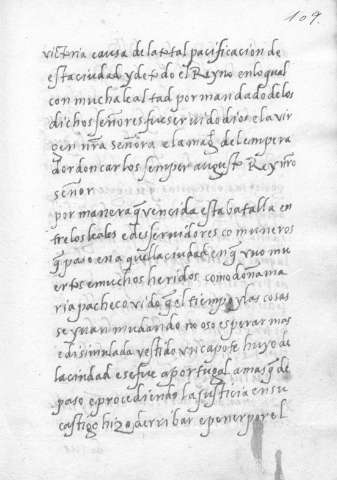 109.
victoria causa dela total pacificacion de
esta ciudad y de todo el Reyno en lo qual
con mucha lealtad por mandado delos
dichos señores fue servido dios e la vir
gen nra señora e la mag. del empera
dor don carlos semper augusto Rey nro
señor
por manera q vencida esta batalla en
tre los leales e deservidores comuneros
q paso en aquella ciudad en q uvo mu
ertos e muchos heridos como doña ma
ria pacheco vido q el tiempo y las cosas
se yvan mudando no oso esperar mas
e disimulada vestido un capote huyo de
la ciudad e se fue a portugal a mas q de
paso e procediendo la justicia en su
castigo hizo derribar e poner por el